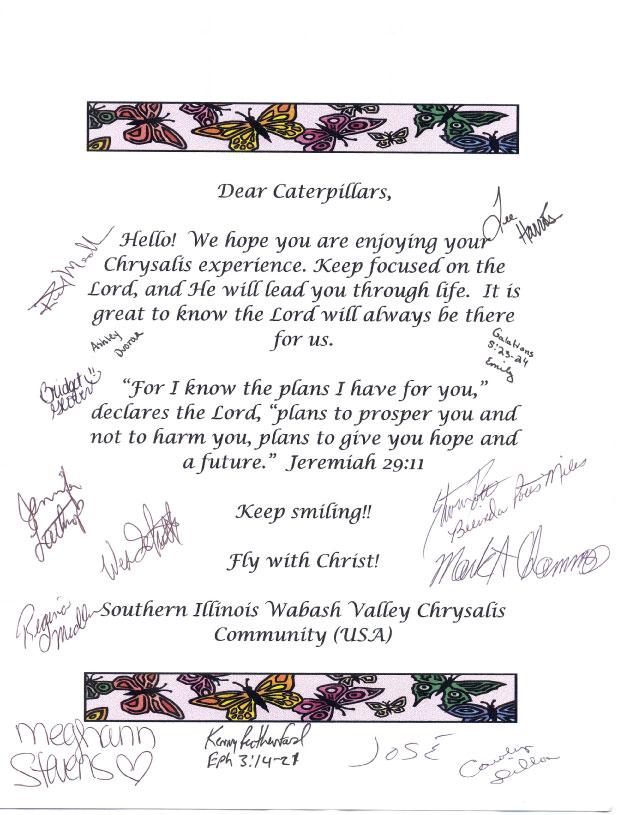 Dear Caterpillars,
Lee
Harris
Hello!  We hope you are enjoying your
Chrysalis experience. Keep focused on the
Lord, and He will lead you through life.  It is
great to know the Lord will always be there
for us.
Ashley
Galations
5:23-24
Emily
Bridget
“For I know the plans I have for you,”
declares the Lord, “plans to prosper you and
not to harm you, plans to give you hope and
a future.”  Jeremiah 29:11
Jennifer
Lathrop
Keep smiling!!
Belinda
Miles
Fly with Christ!
Mark A
Regina
Medlin
Southern Illinois Wabash Valley Chrysalis
Community (USA)
Meghann
Stevens
Kenny Rutherford
Eph 3:14-21
JOSÉ
Carolyn
Dillon